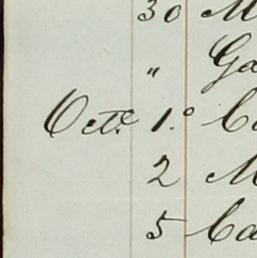 30 M
" Ga
Octe. 1.° C
2 M
5 Ca